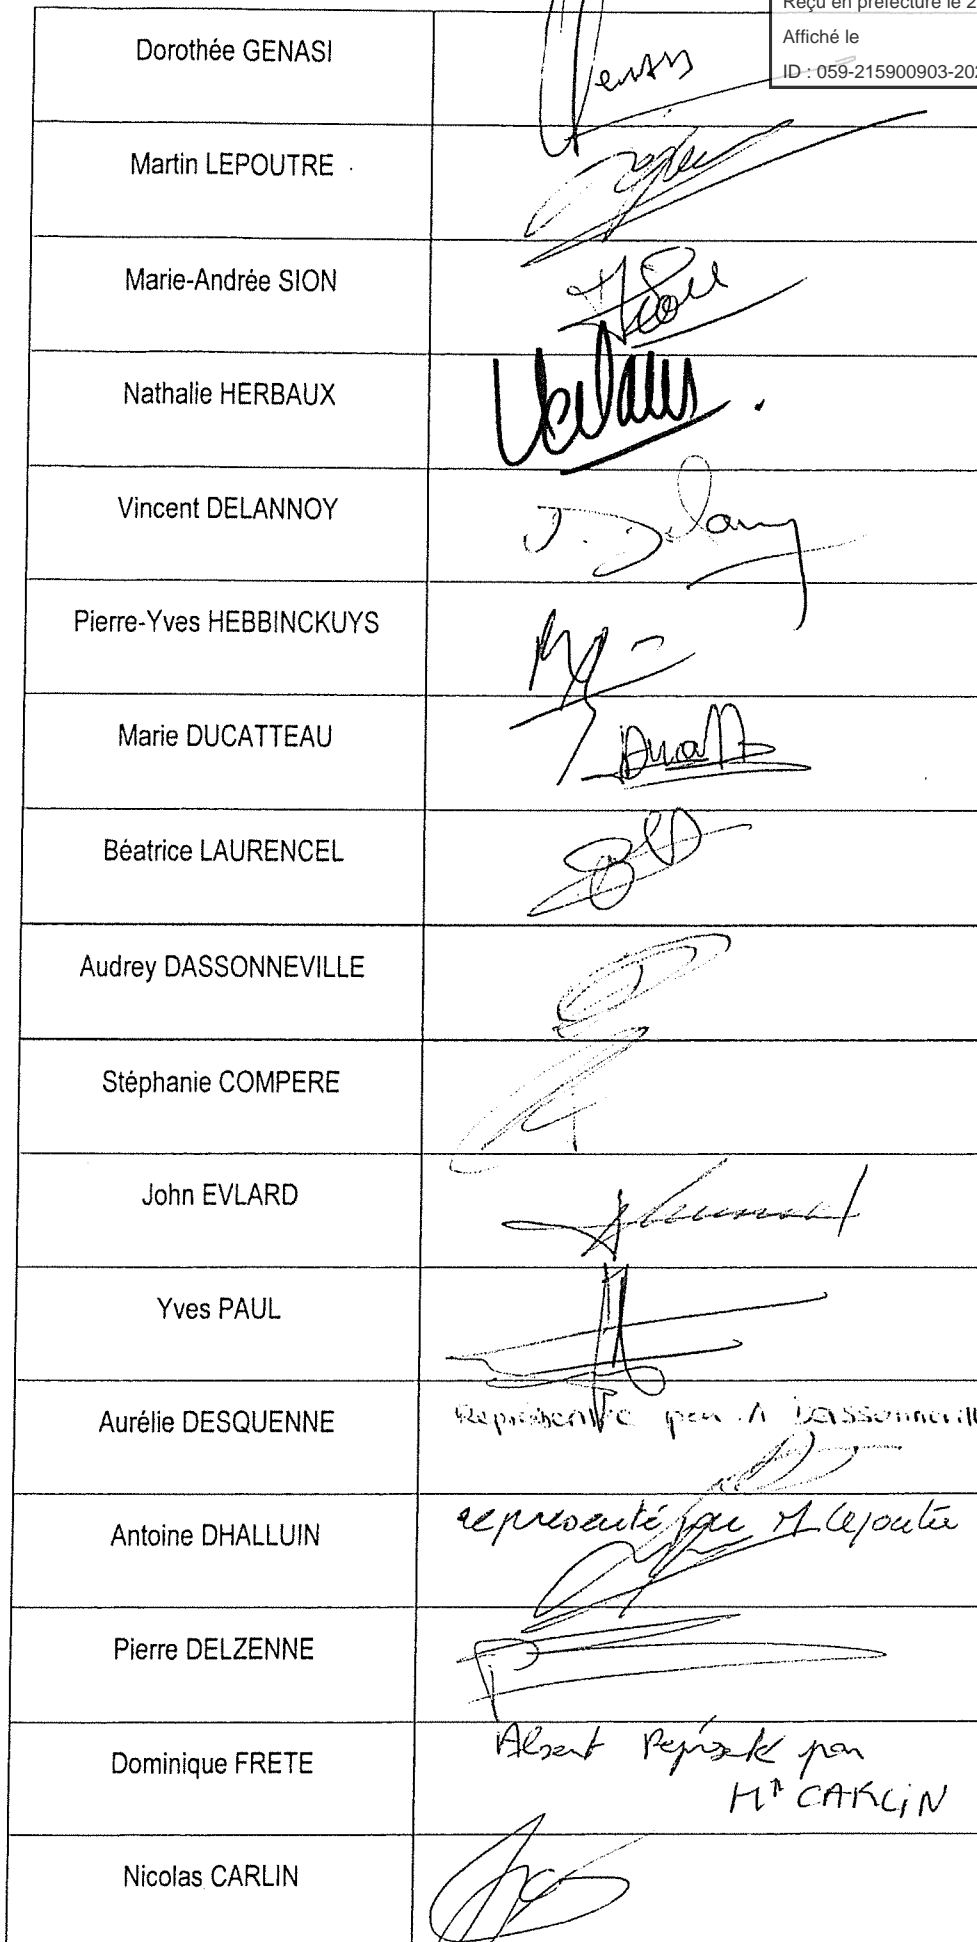 Reçu en préfecture le 2
Affiché le
ID : 059-215900903-202
Dorothée GENASI
Martin LEPOUTRE
Marie-Andrée SION
Nathalie HERBAUX
Vincent DELANNOY
V. Delannoy
Pierre-Yves HEBBINCKUYS
Marie DUCATTEAU
Béatrice LAURENCEL
Audrey DASSONNEVILLE
Stéphanie COMPERE
John EVLARD
Yves PAUL
Aurélie DESQUENNE
Représentée par A Dassonnevill
Antoine DHALLUIN
représenté par M. Lepoutre
Pierre DELZENNE
Dominique FRETE
Absent Représenté par
Mr CARLIN
Nicolas CARLIN